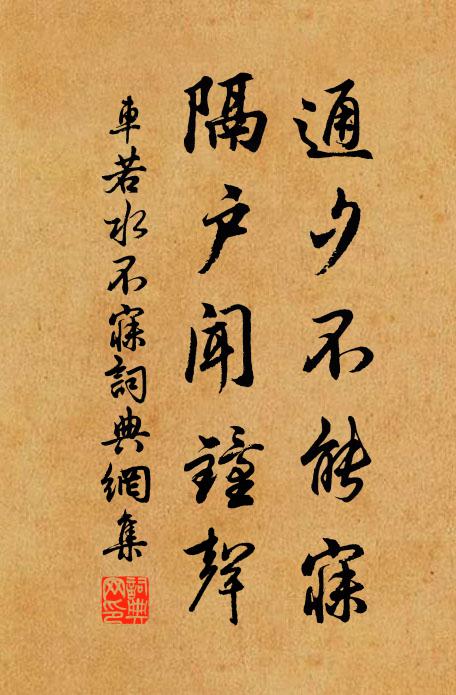 通夕不能寐
隔户闻鐘聲
車若水不寐詞典網集
詞典網印